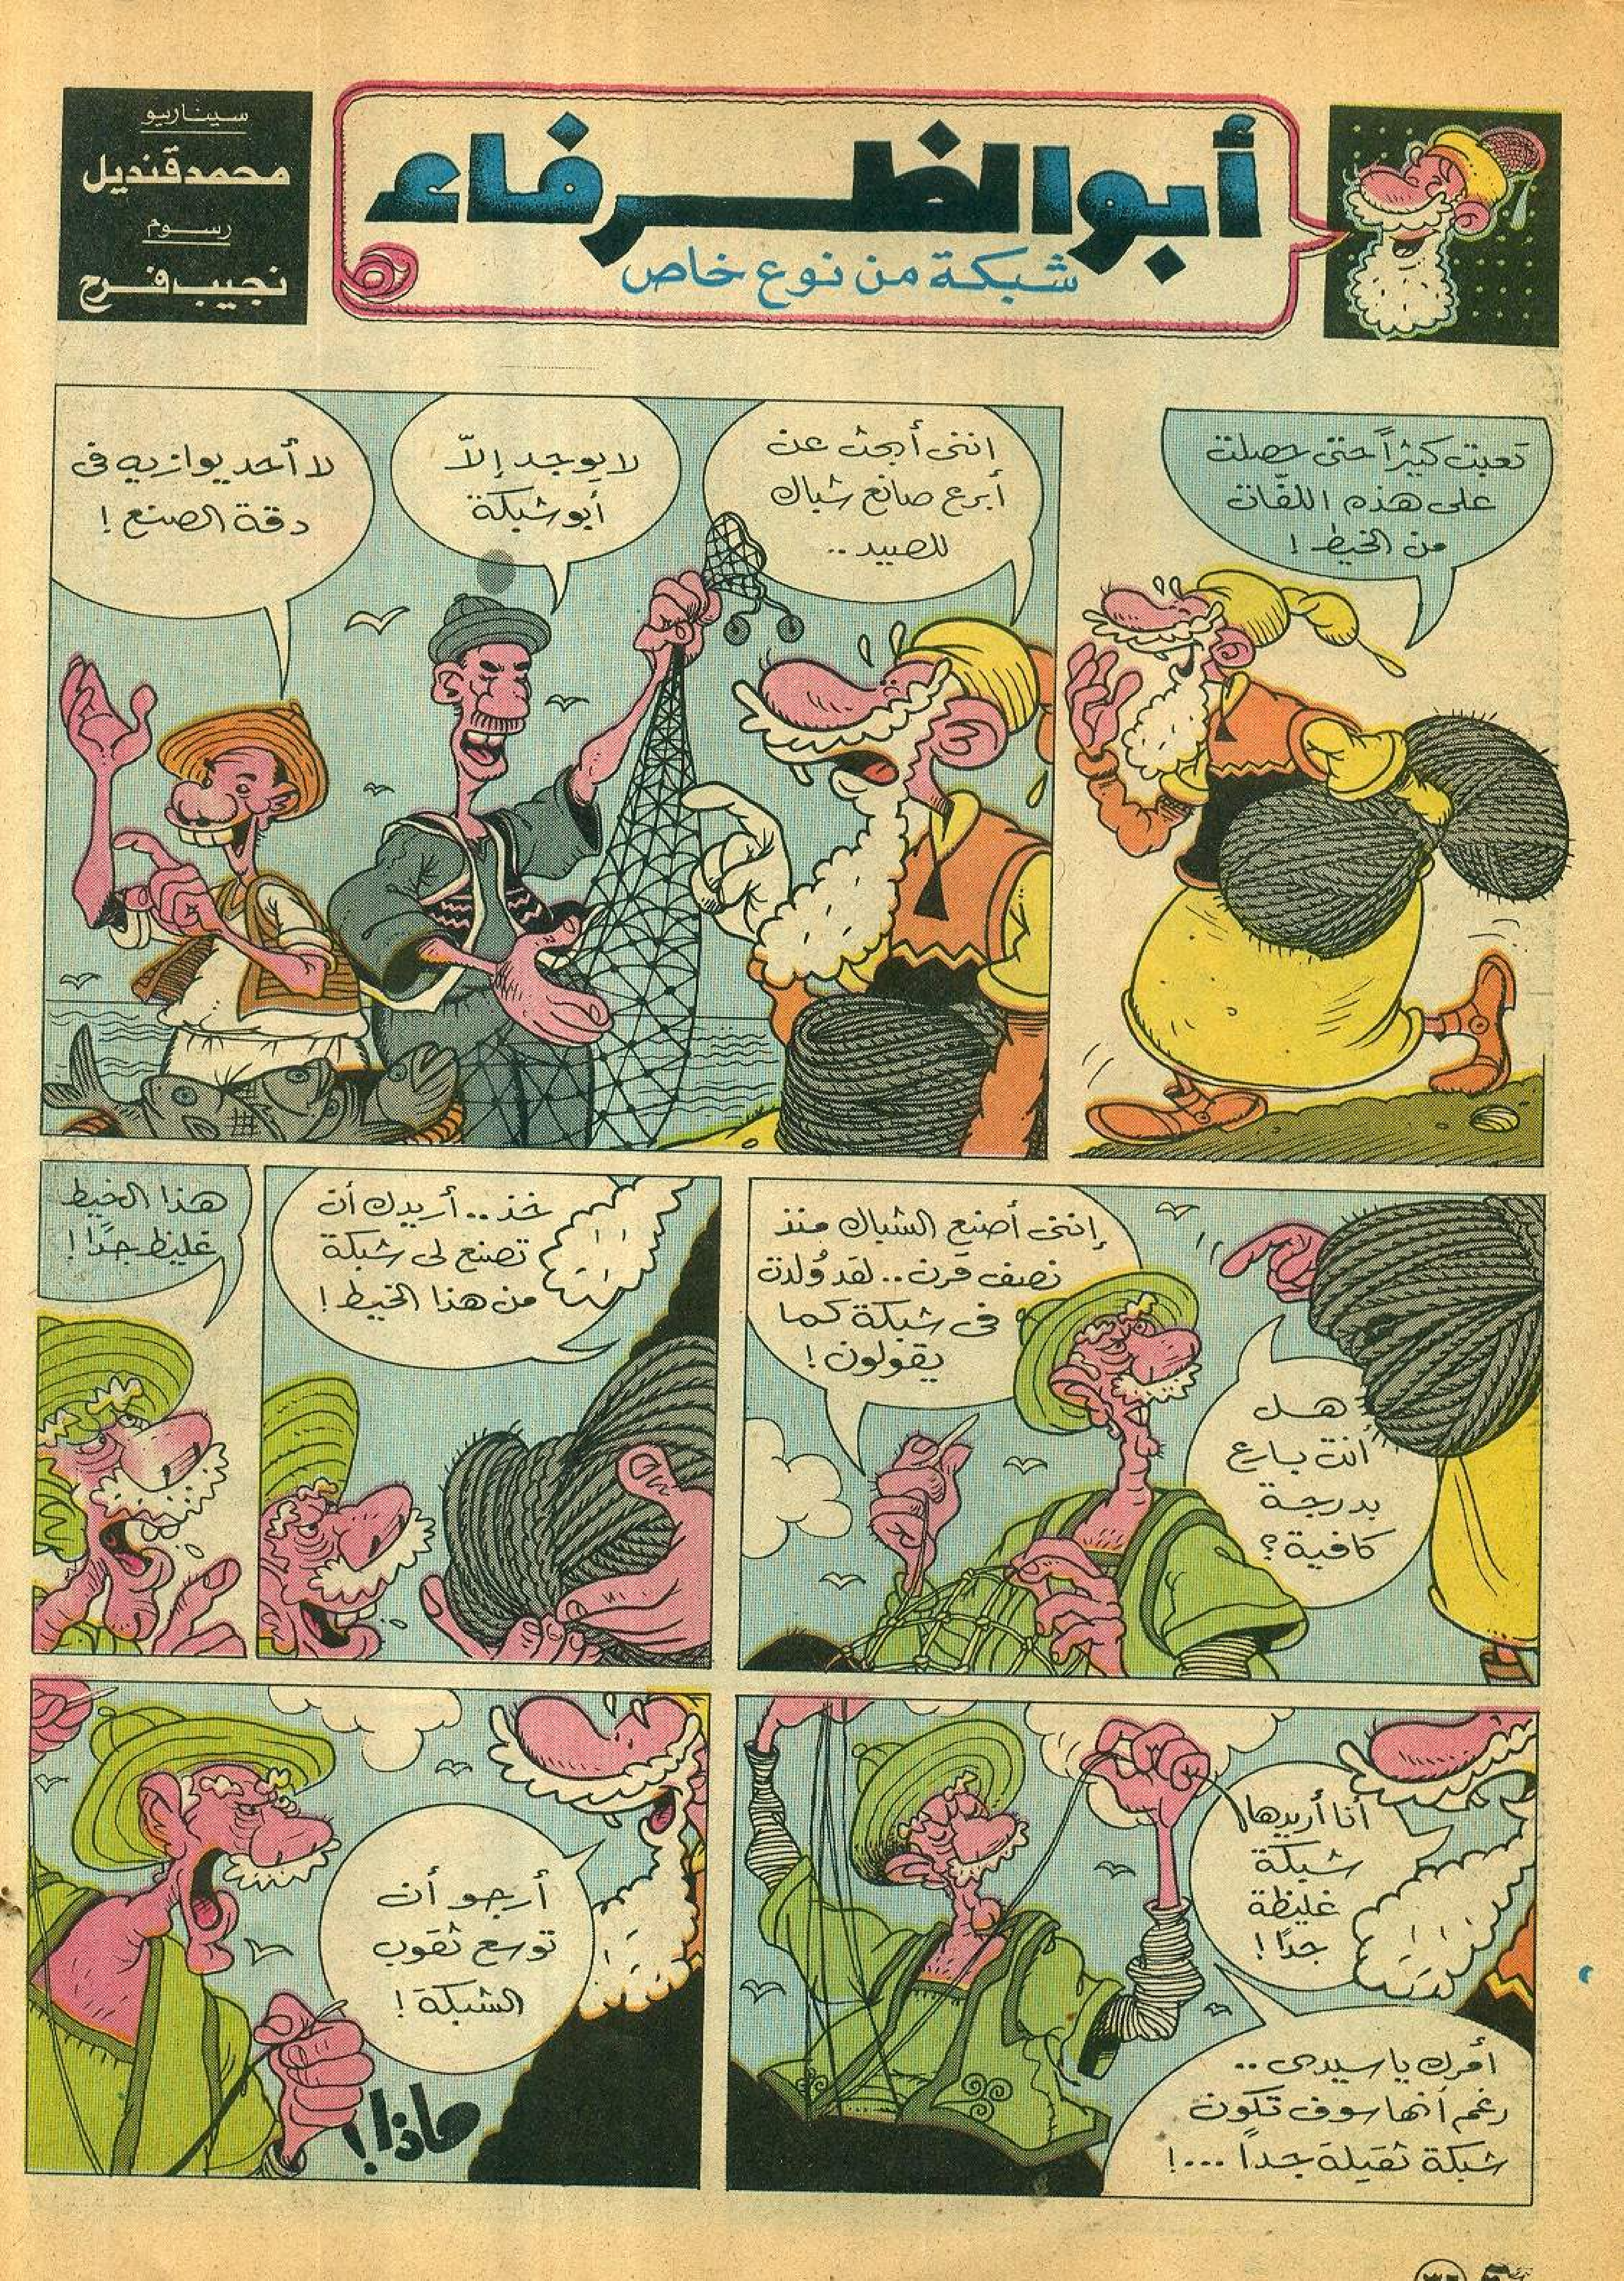 أبو الظرفاء
شبكة من نوع خاص
سيناريو
محمد قنديل
رسوم
نجيب فرح
تعبت كثيراً حتى حصلت
على هذه اللفّات
من الخيط !
اننى أبحث عن
أبرع صانع شباك
للصيد ..
لا يوجد إلاّ
أبو شبكة
لا أحد يوازيه فى
دقة الصنع !
هل
أنت بارع
بدرجة
كافية ؟
إننى أصنع الشباك منذ
نصف قرن .. لقد وُلدت
فى شبكة كما
يقولون !
خذ .. أريدك أن
تصنع لى شبكة
من هذا الخيط !
هذا الخيط
غليظ جدًا !
أنا أريدها
شبكة
غليظة
جدًا !
أمرك يا سيدى ..
رغم أنها سوف تكون
شبكة ثقيلة جداً ... !
أرجو أن
توسع ثقوب
الشبكة !
ماذا !